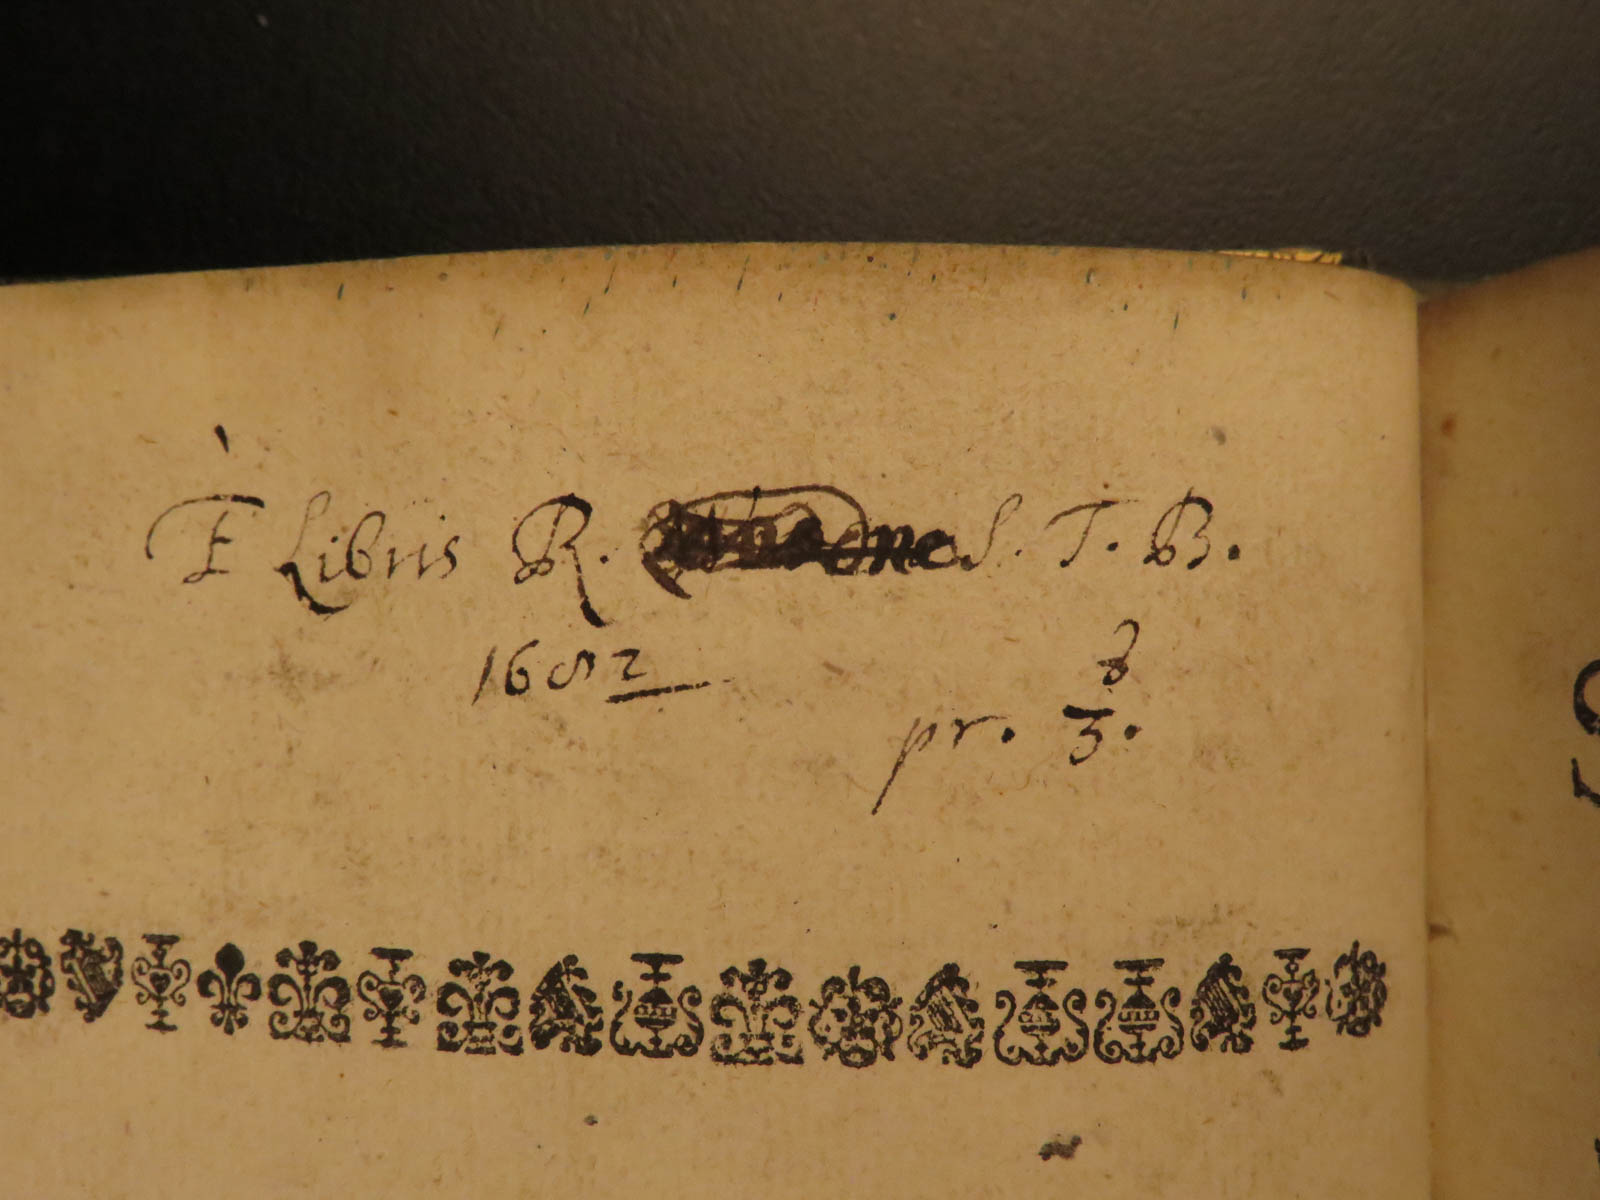 È Libris R. S. T. B.
1682
pr. 3.